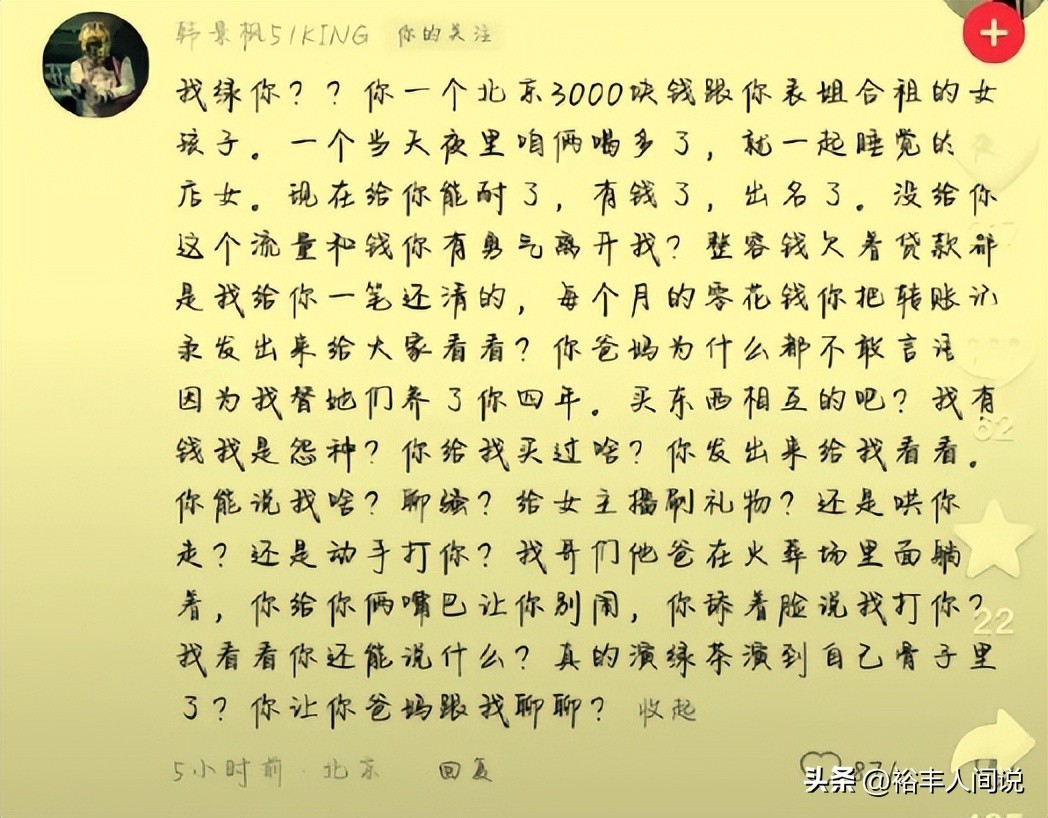 韩景枫51KING 你的关注
我绿你？？你一个北京3000块钱跟你表姐合租的女
孩子。一个当天夜里咱俩喝多了，就一起睡觉的
店女。现在给你能耐了，有钱了，出名了。没给你
这个流量和钱你有勇气离开我？整容钱欠着贷款都
是我给你一笔还清的，每个月的零花钱你把转账记
录发出来给大家看看？你爸妈为什么都不敢言语
因为我替她们养了你四年。买东西相互的吧？我有
钱我是怨种？你给我买过啥？你发出来给我看看。
你能说我啥？聊骚？给女主播刷礼物？还是哄你
走？还是动手打你？我哥们他爸在火葬场里面躺
着，你给你俩嘴巴让你别闹，你舔着脸说我打你？
我看看你还能说什么？真的演绿茶演到自己骨子里
了？你让你爸妈跟我聊聊？ 收起
5小时前·北京 回复
62
22
头条 @裕丰人间说